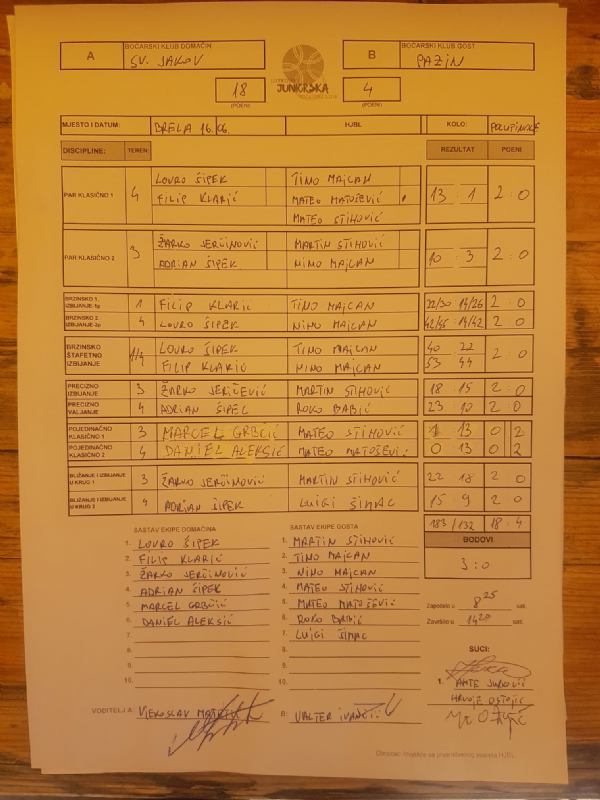 A BOĆARSKI KLUB DOMAĆIN SV. JAKOV B BOĆARSKI KLUB GOST PAZIN
18 JUNIORSKA 4
(POENI) (POENI)
MJESTO I DATUM: BRELA 16.06. HJBL KOLO: POLUFINALE
DISCIPLINE: TEREN: REZULTAT POENI
PAR KLASIČNO 1 4 LOVRO ŠIPEK TINO MAJCAN 13 : 1 2 : 0
FILIP KLARIĆ MATEO MATOŠEVIĆ
MATEO STIHOVIĆ
PAR KLASIČNO 2 3 ŽARKO JERČINOVIĆ MARTIN STIHOVIĆ 10 : 3 2 : 0
ADRIAN ŠIPEK NINO MAJCAN
BRZINSKO 1. IZBIJANJE-1p 1 FILIP KLARIĆ TINO MAJCAN 22/30 14/26 2 0
BRZINSKO 2. IZBIJANJE-2p 4 LOVRO ŠIPEK NINO MAJCAN 42/45 14/42 2 0
BRZINSKO ŠTAFETNO IZBIJANJE 1/4 LOVRO ŠIPEK TINO MAJCAN 40 22 2 : 0
FILIP KLARIĆ NINO MAJCAN 53 44
PRECIZNO IZBIJANJE 3 ŽARKO JERČEVIĆ MARTIN STIHOVIĆ 18 : 15 2 : 0
PRECIZNO VALJANJE 4 ADRIAN ŠIPEL ROKO BABIĆ 23 10 2 0
POJEDINAČNO KLASIČNO 1 3 MARCEL GRBČIĆ MATEO STIHOVIĆ 1 13 0 2
POJEDINAČNO KLASIČNO 2 4 DANIEL ALEKSIĆ MATEO MATOŠEVIĆ 0 13 0 2
BLIŽANJE I IZBIJANJE U KRUG 1 3 ŽARKO JERČINOVIĆ MARTIN STIHOVIĆ 22 18 2 0
BLIŽANJE I IZBIJANJE U KRUG 2 4 ADRIAN ŠIPEK LUIGI ŠIMAC 15 9 2 0
183/132 18 : 4
SASTAV EKIPE DOMAĆINA SASTAV EKIPE GOSTA BODOVI
1. LOVRO ŠIPEK 1. MARTIN STIHOVIĆ
2. FILIP KLARIĆ 2. TINO MAJCAN 3 : 0
3. ŽARKO JERČINOVIĆ 3. NINO MAJCAN
4. ADRIAN ŠIPEK 4. MATEO STIHOVIĆ
5. MARCEL GRBČIĆ 5. MATEO MATOŠEVIĆ Započelo u 8 25 sati.
6. DANIEL ALEKSIĆ 6. ROKO BABIĆ Završilo u 14 20 sati.
7. 7. LUIGI ŠIMAC
8. 8. SUCI:
9. 9.
10. 10. 1. ANTE JURKOVIĆ
HRVOJE OSTOJIĆ
VODITELJ A: VJEKOSLAV B: VALTER IVANČIĆ